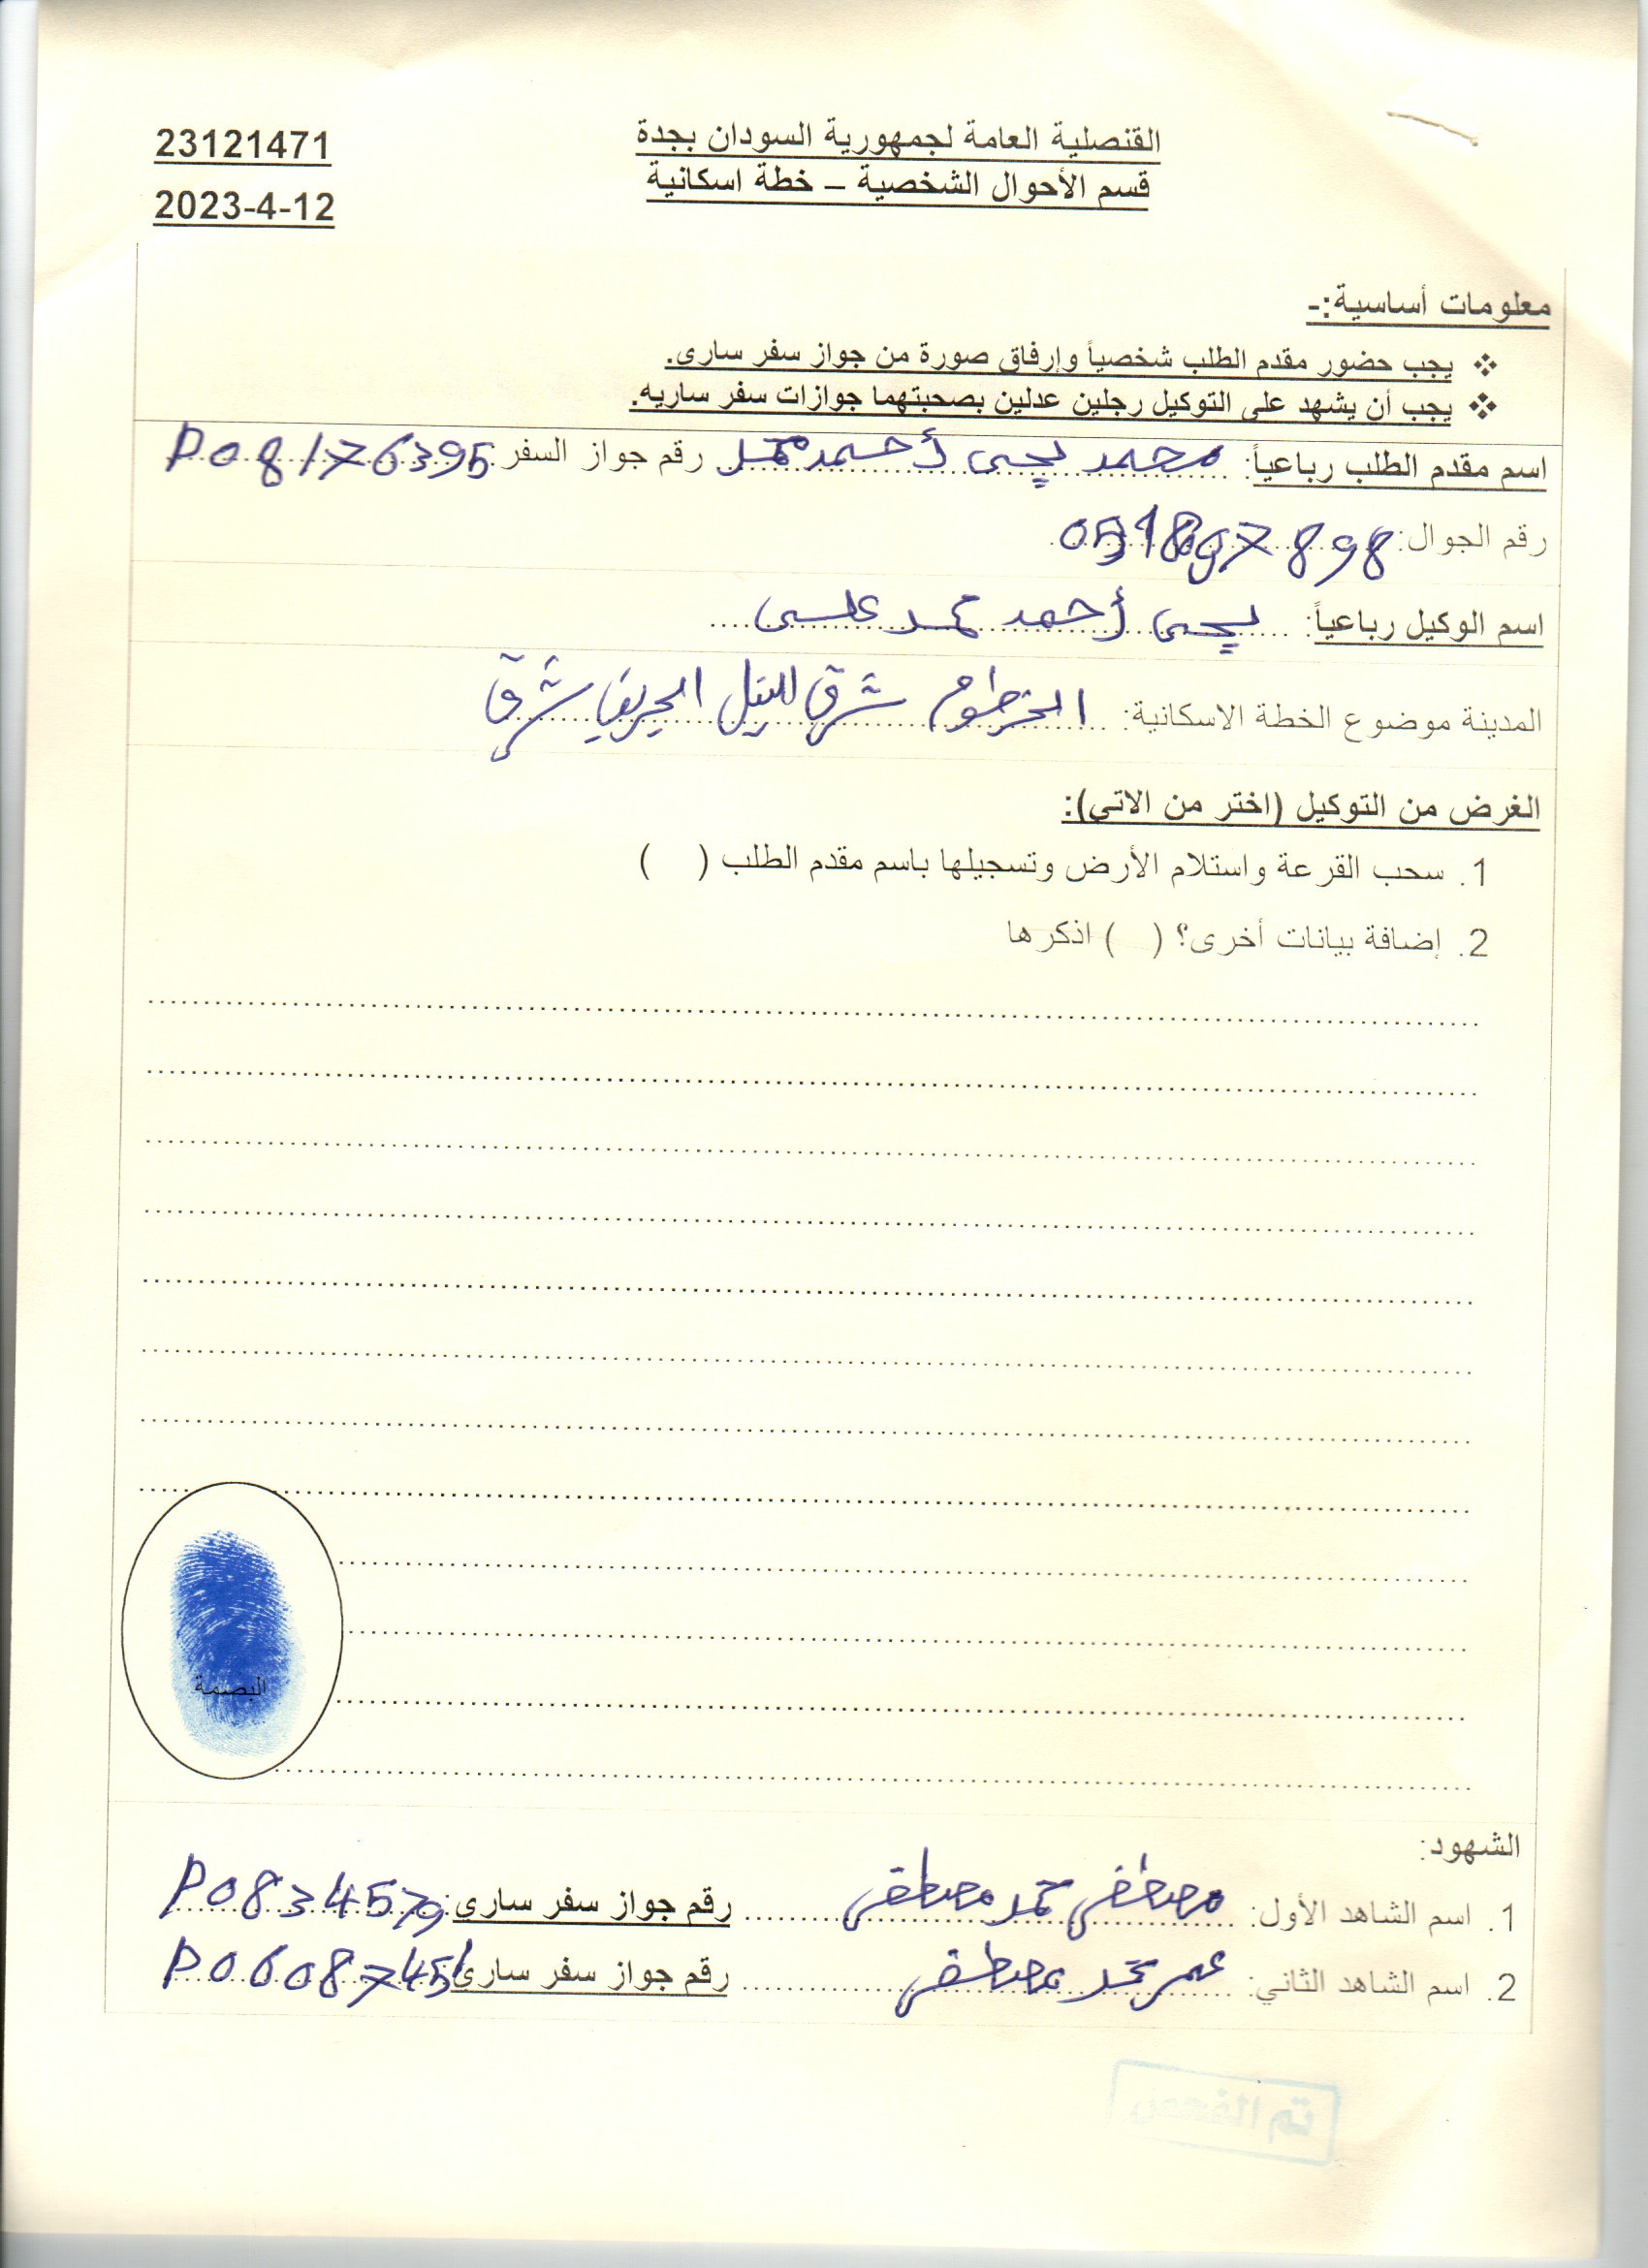 القنصلية العامة لجمهورية السودان بجدة
23121471
قسم الأحوال الشخصية – خطة اسكانية
2023-4-12
معلومات أساسية:-
❖ يجب حضور مقدم الطلب شخصياً وإرفاق صورة من جواز سفر سارى.
❖ يجب أن يشهد على التوكيل رجلين عدلين بصحبتهما جوازات سفر ساريه.
اسم مقدم الطلب رباعياً: محمد يحيى أحمد محمد رقم جواز السفر P08176395
رقم الجوال: 897 898
اسم الوكيل رباعياً: يحيى أحمد محمد عيسى
المدينة موضوع الخطة الاسكانية: الخرطوم شرق النيل الجريف شرق
الغرض من التوكيل (اختر من الاتى):
1. سحب القرعة واستلام الأرض وتسجيلها باسم مقدم الطلب ( )
2. إضافة بيانات أخرى؟ ( ) اذكرها
البصمة
الشهود:
1. اسم الشاهد الأول: مصطفى محمد مصطفى رقم جواز سفر سارى:
2. اسم الشاهد الثاني: عمر محمد مصطفى رقم جواز سفر سارى